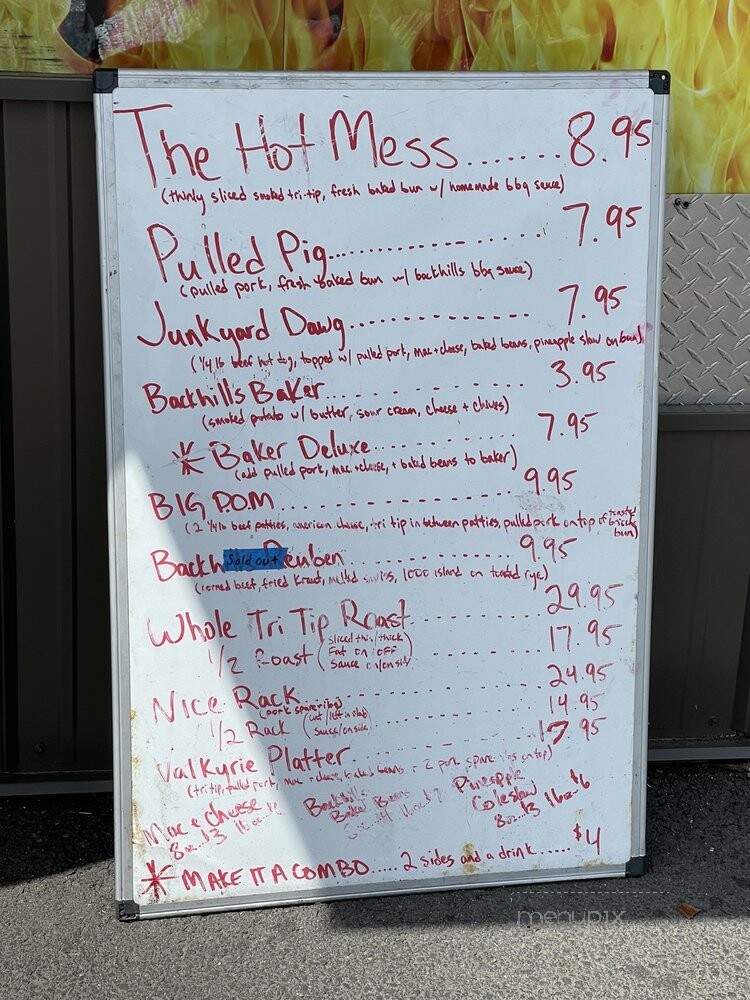 The Hot Mess.......8.95
(thinly sliced smoked tri-tip, fresh baked bun w/ homemade bbq sauce)
Pulled Pig............... 7.95
(pulled pork, fresh baked bun w/ backhills bbq sauce)
Junkyard Dawg............... 7.95
(1/4 lb beef hot dog, topped w/ pulled pork, mac+cheese, baked beans, pineapple slaw on bun)
Backhills Baker............... 3.95
(smoked potato w/ butter, sour cream, cheese + chives)
Baker Deluxe............... 7.95
(add pulled pork, mac+cheese, + baked beans to baker)
BIG D.O.M............... 9.95
(2 1/4 lb beef patties, american cheese, tri tip in between patties, pulled pork on top of toasted brioche bun)
Backh Sold out Reuben............... 9.95
(corned beef, fried kraut, melted swiss, 1000 island on toasted rye)
Whole Tri Tip Roast............... 29.95
1/2 Roast (sliced thin/thick Fat on/off Sauce on/on side)............... 17.95
Nice Rack............... 24.95
(pork spare ribs)
1/2 Rack (cut/left in slab) (sauce/on side)............... 14.95
Valkyrie Platter............... 17.95
(tri tip, pulled pork, mac+cheese, baked beans + 2 pork spare ribs on top)
Mac & cheese 8oz..$3 16oz..
Backhills Baked Beans 8oz..$4 16oz..
Pineapple Coleslaw 8oz..$3 16oz-$6
MAKE IT A COMBO.....2 sides and a drink.....$4
menupix